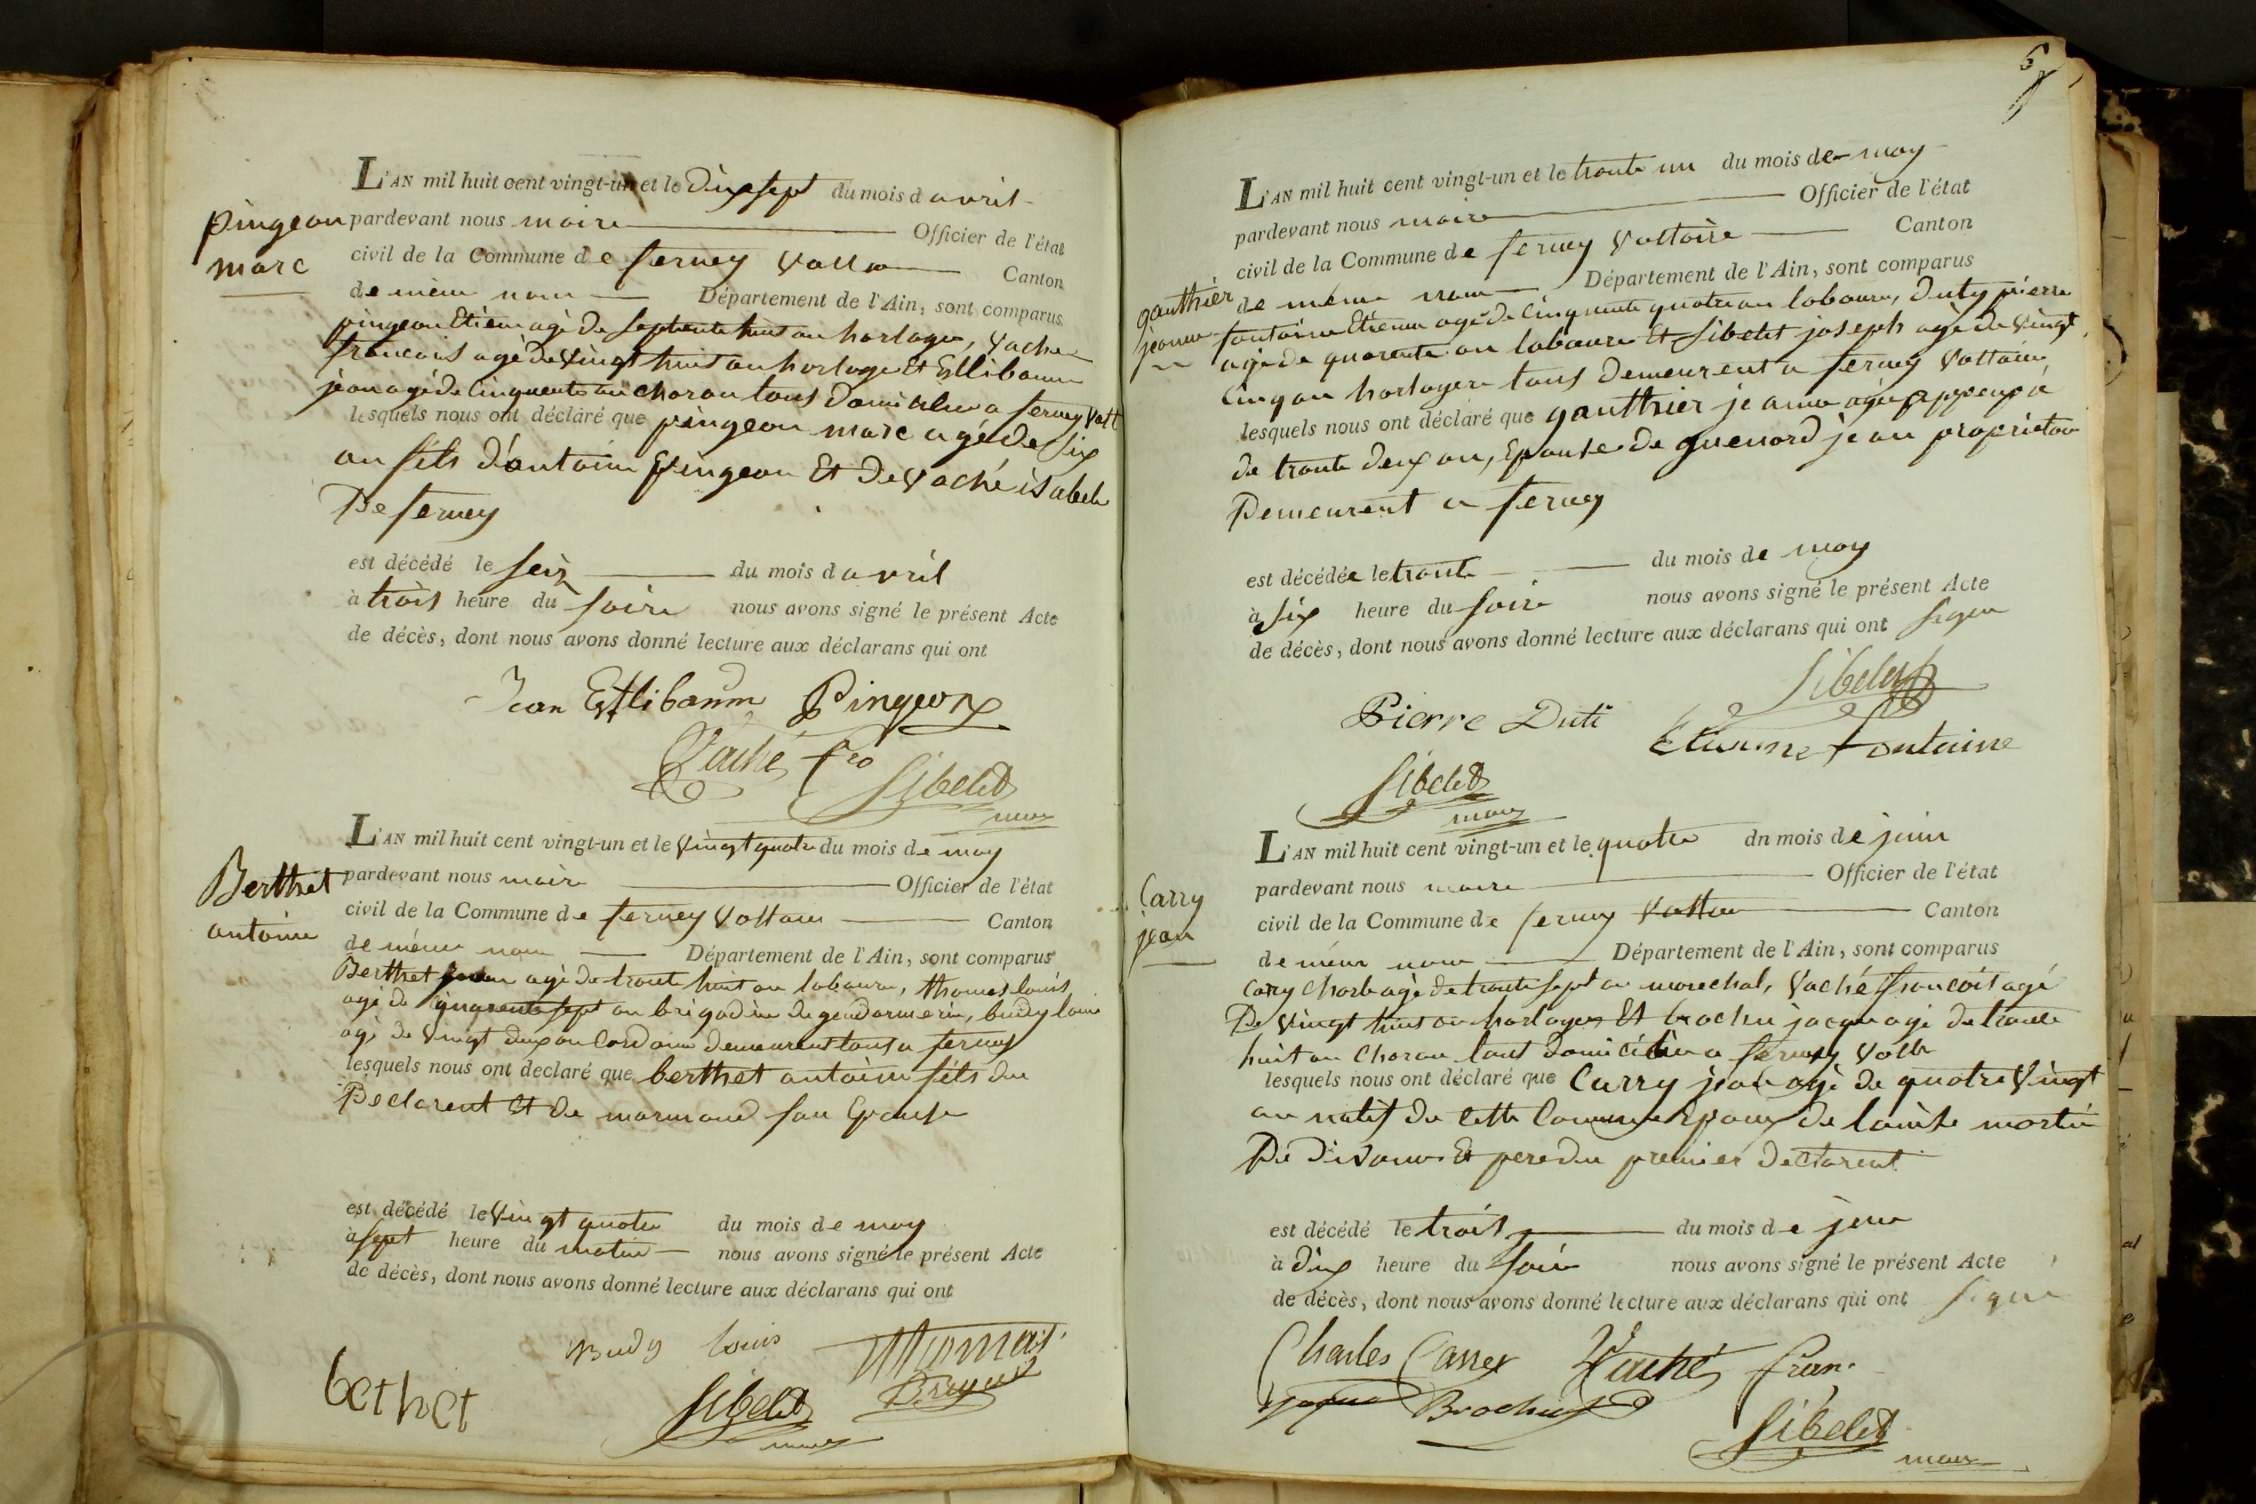 L'AN mil huit cent vingt-un et le dixsept du mois d avril
pingeon pardevant nous maire Officier de l'état
marc civil de la Commune de ferney Canton
de même nom Département de l'Ain, sont comparus
pingeon Etienn agé de septente huit an horloger, vache
francois agé de vingt huit an horloge Et Estlibaum
jean agé de Cinquente an charon tous domicilies a ferney Volt
lesquels nous ont déclaré que pingeon marc agé de six
an fils d'antoine pingeon Et de vaché isabele
De ferney
est décédé le seiz du mois d avril
à trois heure du soire nous avons signé le présent Acte
de décès, dont nous avons donné lecture aux déclarans qui ont
Jean Estlibaum Pingeon
Vaché fco
Sibelet
maire
L'AN mil huit cent vingt-un et le vingt quatre du mois de may
Berthet pardevant nous maire Officier de l'état
antoine civil de la Commune de ferney Voltaire Canton
de même nom Département de l'Ain, sont comparus
Berthet agé de trante huit an laboure, thomas louis
agé de quarente sept an brigadie de gendarmerie, budy louis
agé de vingt deux an Cordonie demeurent tous a ferney
lesquels nous ont declaré que berthet antoine fils du
Declarent Et de marmand son Epouse
est décédé le vingt quatre du mois de may
à sept heure du matin nous avons signé le présent Acte
de décès, dont nous avons donné lecture aux déclarans qui ont
Budy louis Thomas
bethet Sibelet
maire
6
L'AN mil huit cent vingt-un et le trante un du mois de may
pardevant nous maire Officier de l'état
civil de la Commune de ferney Voltaire Canton
gauthier de même nom Département de l'Ain, sont comparus
jeanne fontaine Etienne agé de Cinquente quatre an laboure, duty pierre
agé de quarente an laboure Et Sibelet joseph agé de vingt
Cinq an horlogere tous demeurent a ferney Voltaire
lesquels nous ont déclaré que gauthier jeanne agée
de trante deux an, Epouse de guenard jean proprietaire
Demeurent a ferney
est décédée le trante du mois de may
à six heure du soire nous avons signé le présent Acte
de décès, dont nous avons donné lecture aux déclarans qui ont signé
Sibelet
Pierre Duti Etienne fontaine
Sibelet
maire
L'AN mil huit cent vingt-un et le quatre dn mois de juin
pardevant nous maire Officier de l'état
Carry civil de la Commune de ferney Voltaire Canton
jean de même nom Département de l'Ain, sont comparus
Carry Charle agé de trante sept an marechal, Vaché francois agé
De vingt huit an horloger Et brochu jacque agé de trante
huit an Charon tous domicilie a ferney Volte
lesquels nous ont déclaré que Carry jean agé de quatre vingt
an natif de cette Commune Epoux de louise martin
De Et pere du premier declarent
est décédé le trois du mois de juin
à dix heure du soir nous avons signé le présent Acte
de décès, dont nous avons donné lecture aux déclarans qui ont signé
Charles Carrey Vaché fran.
Jaque Brochu
Sibelet
maire